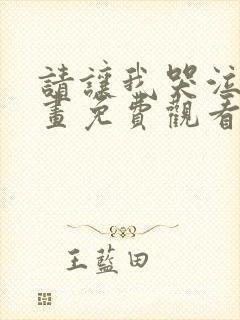 請讓我哭泣
畫免費觀看
王藍田